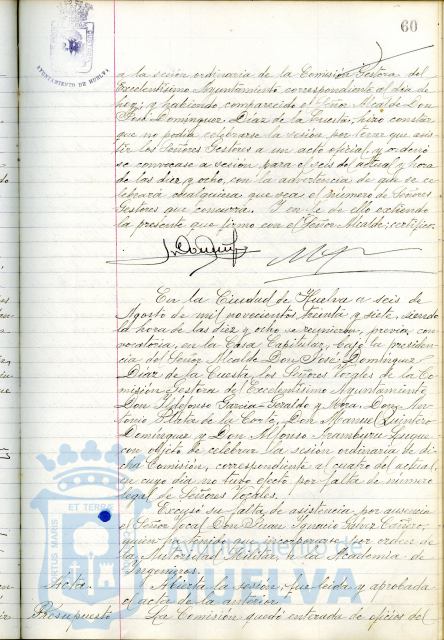 60
AYUNTAMIENTO DE HUELVA
a la sesión ordinaria de la Comisión Gestora del
Excelentísimo Ayuntamiento correspondiente al día de
hoy; y habiendo comparecido el Señor Alcalde Don
José Domínguez Díaz de la Cuesta, hizo constar
que no podía celebrarse la sesión por tener que asis-
tir los Señores Gestores a un acto oficial, y ordenó
se convocase a sesión para el seis del actual y hora
de las diez y ocho, con la advertencia de que se ce-
lebrará cualquiera que sea el número de Señores
Gestores que concurra. Y en fe de ello extiendo
la presente que firmo con el Señor Alcalde; certifico.
En la Ciudad de Huelva a seis de
Agosto de mil novecientos treinta y siete, siendo
la hora de las diez y ocho se reunieron, previa con-
vocatoria, en la Casa Capitular, bajo la presiden-
cia del Señor Alcalde Don José Domínguez
Díaz de la Cuesta, los Señores Vocales de la Co-
misión Gestora del Excelentísimo Ayuntamiento,
Don Ildefonso García-Geraldo y Mora, Don An-
tonio Plata de la Corte, Don Manuel Quintero
Domínguez y Don Alfonso Aramburu
con objeto de celebrar la sesión ordinaria de di-
cha Comisión, correspondiente al cuatro del actual,
en cuyo día no tuvo efecto por falta de número
legal de Señores Vocales.
Excusó su falta de asistencia por ausencia
el Señor Vocal Don Juan Ignacio Gálvez Cañero,
quien ha tenido que incorporarse por orden de
la Autoridad Militar, a la Academia de
Ingenieros.
Acta. Abierta la sesión, fue leída y aprobada
el acta de la anterior.
Presupuesto La Comisión quedó enterada de oficios del
ET TERRAE
PORTUS MARIS
Ayuntamiento de
HUELVA